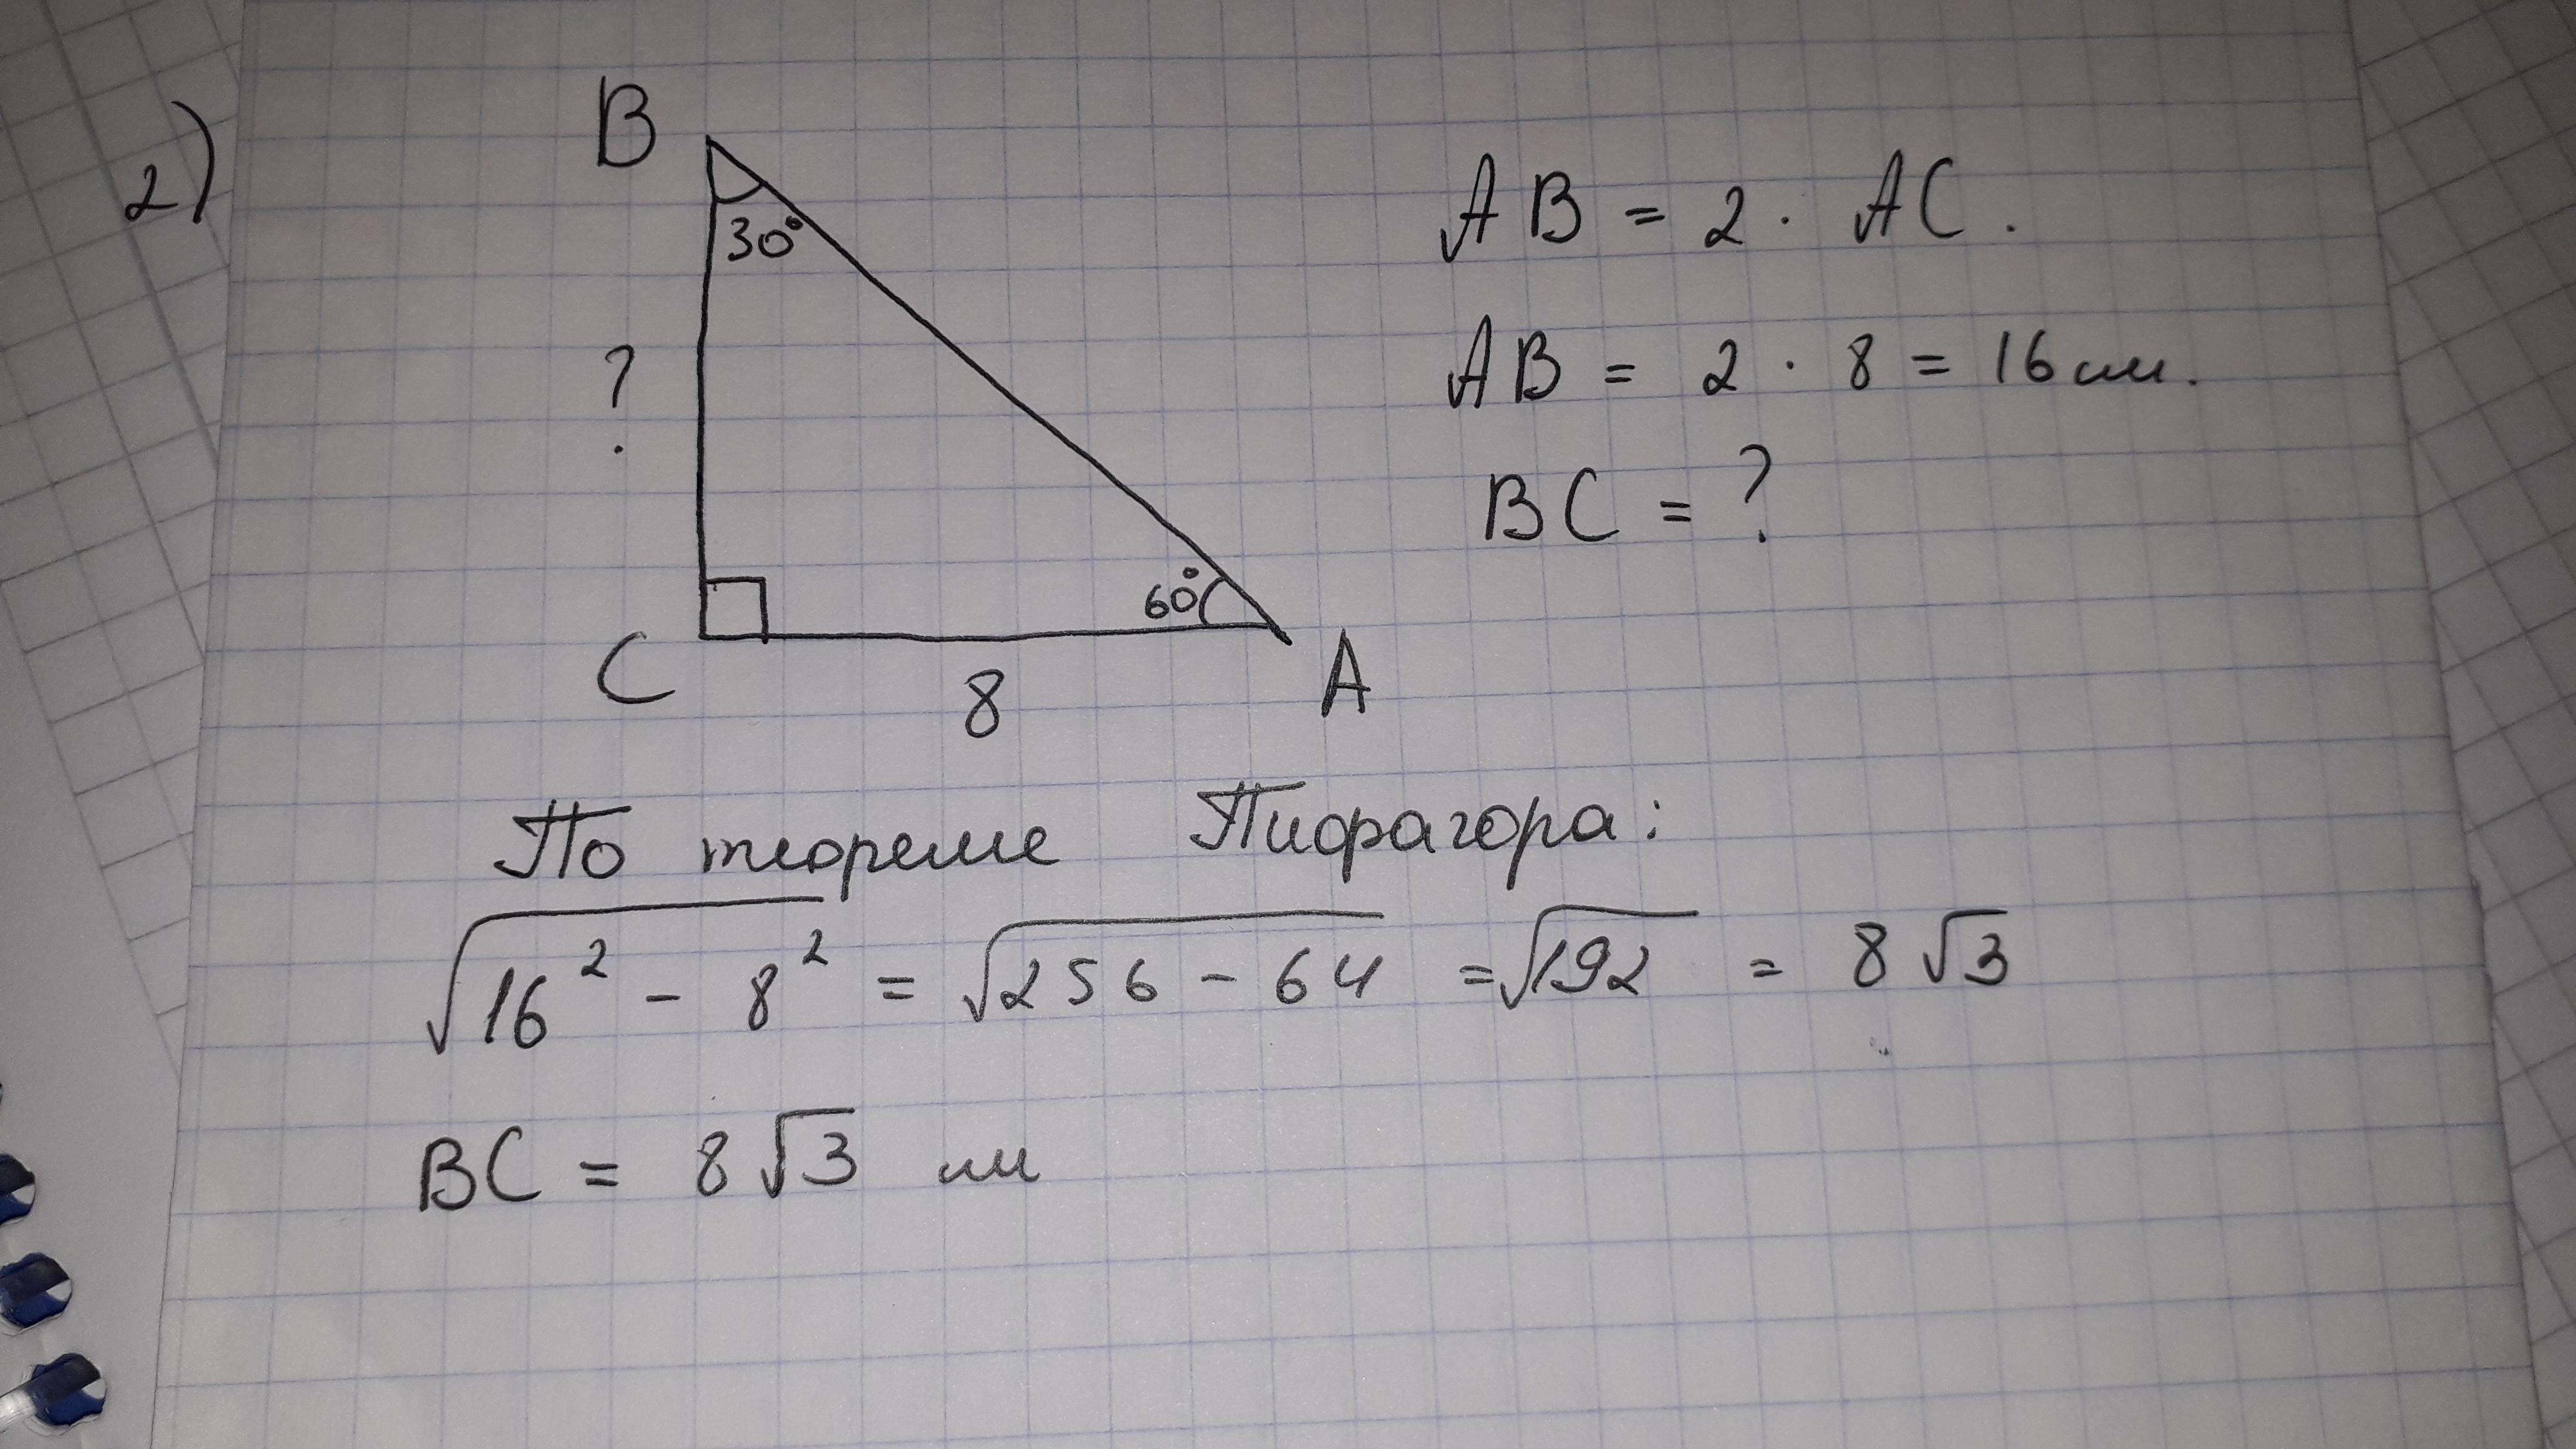 2)
B
30°
?
C
8
60°
A
AB = 2 · AC.
AB = 2 · 8 = 16 см.
BC = ?
По теореме Пифагора:
√16² - 8² = √256 - 64 = √192 = 8√3
BC = 8√3 см